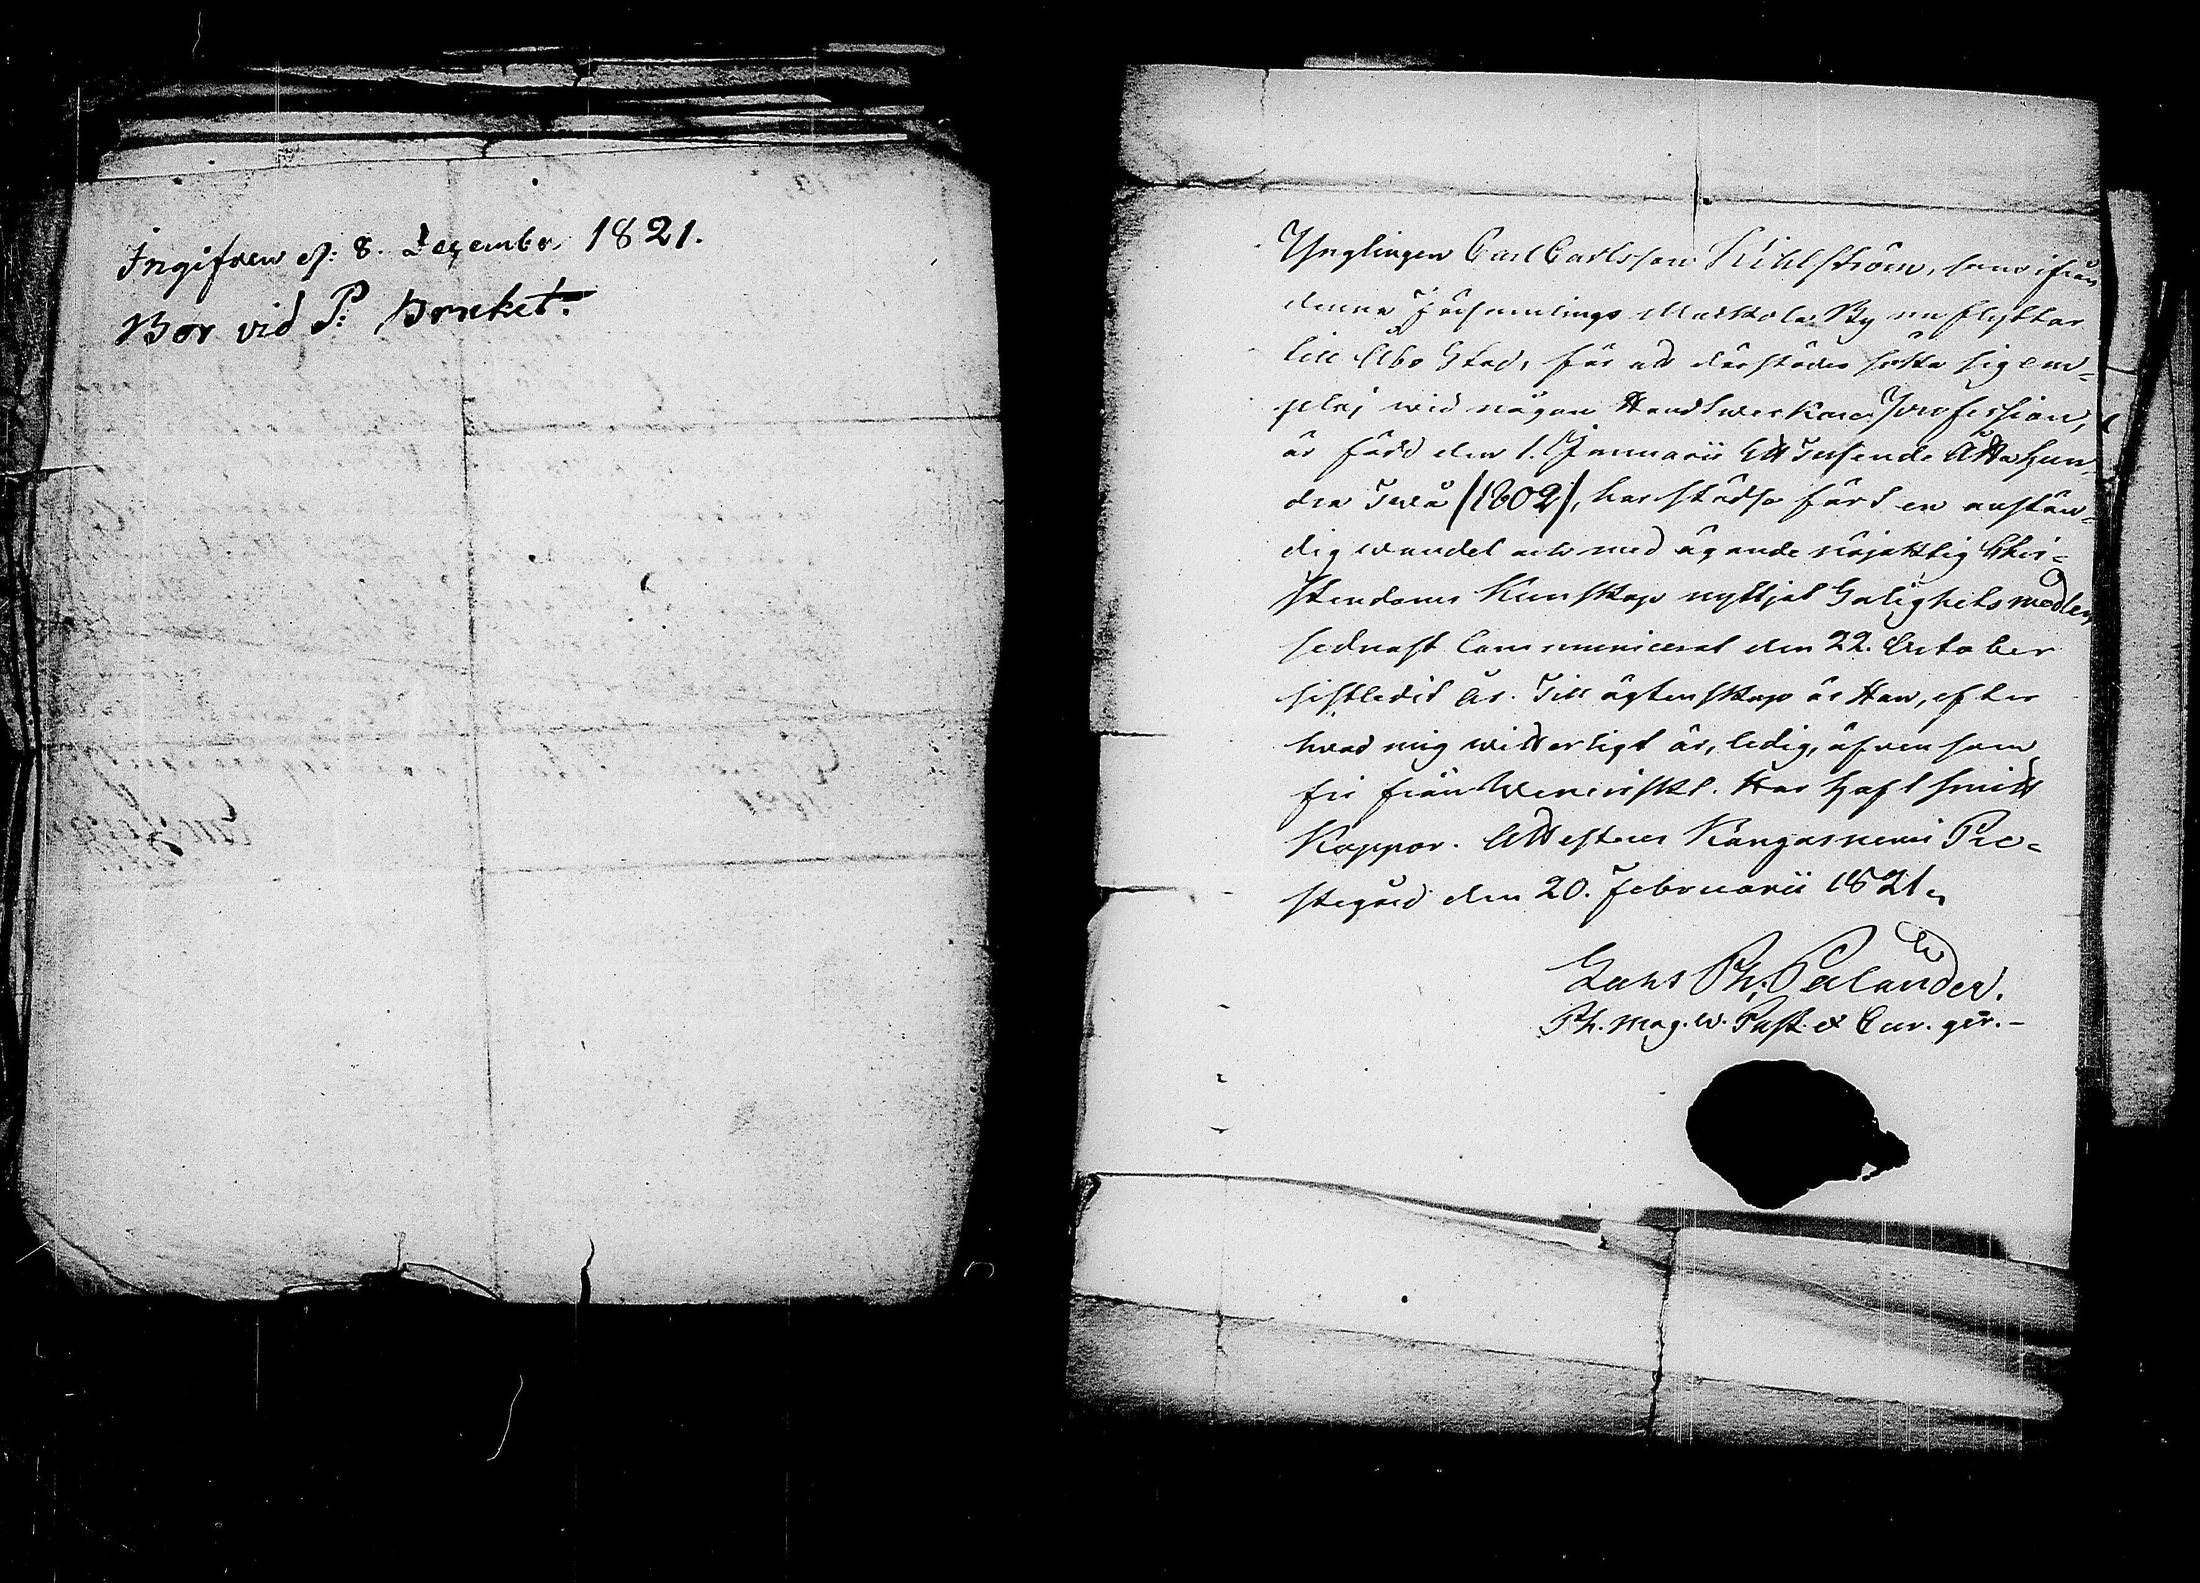 Ingifven d: 8. December 1821.
Bor vid P: Bruket.
Ynglingen Carl Carlsson Kihlström, som ifrån
denna Församlings Makkola By nu flyttar
till Åbo Stad, för att därstädes söka sig em-
ploj wid någon Handtwerkare Profession,
är född den 1. Januarii Ett Tusende Åtta Hun-
dra Twå (1802), har städse fört en anstän-
dig wandel och med ägande nöjaktig Chri-
stendoms Kunskap nyttjat Salighetsmedlen,
sednast Communicerat den 22. October
sistledit År. Till ägtenskap är Han, efter
hvad mig witterligt är, ledig, äfven som
fri från Veneriskt. Har haft smitt
Koppor. Attesteras Kangasniemi Pre-
stegård den 20. Februarii 1821.
Joh. Palander.
Ph. Mag. v. Past. et Cur. ger.